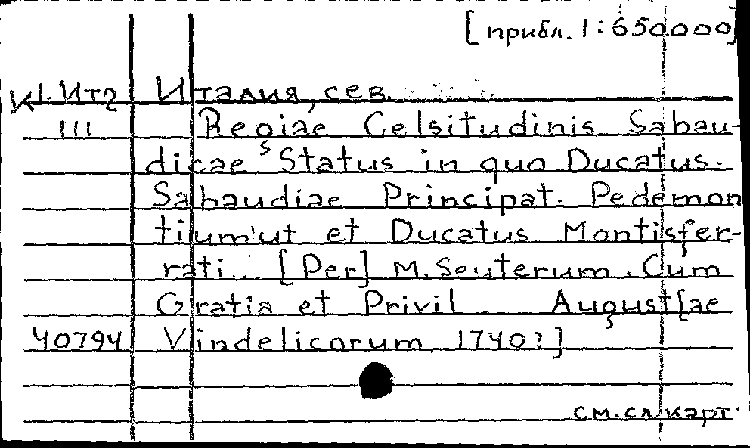 [прибл. 1:650000]
К1.Ит2 Италия, сев.
III Regiae Celsitudinis Sabau-
dicae Status in quo Ducatus.
Sabaudiae Principat. Pedemon
tium ut et Ducatus Montisfer-
rati. [Per] M. Seuterum. Cum
Gratia et Privil. August[ae
40794 Vindelicorum 1740?]
см.сл.карт.